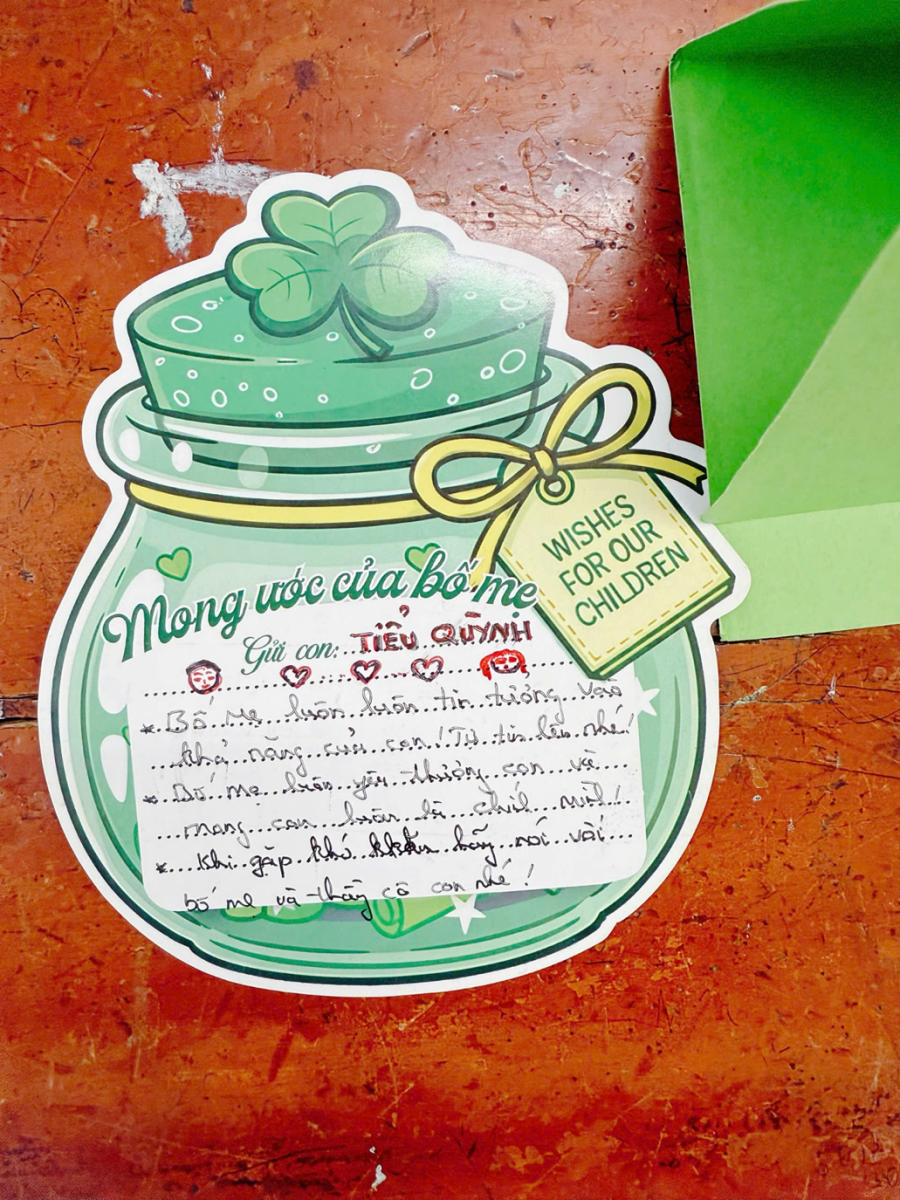 WISHES
FOR OUR
CHILDREN
Mong ước của bố mẹ
Gửi con: TIỂU QUỲNH
* Bố Mẹ luôn luôn tin tưởng vào
khả năng của con! Tự tin lên nhé!
* Bố mẹ luôn yêu thương con và
mong con luôn là chính mình!
* Khi gặp khó khăn hãy nói với
bố mẹ và thầy cô con nhé!